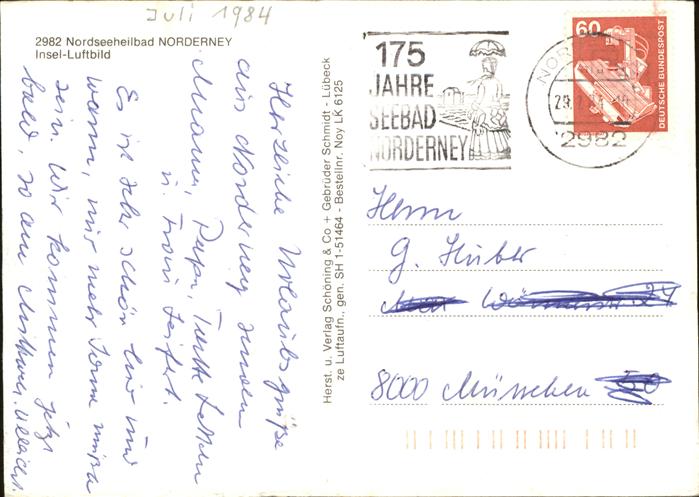 Juli 1984
2982 Nordseeheilbad NORDERNEY
Insel-Luftbild
Herzliche Urlaubsgrüße
aus Norderney senden
Mama, Papa, Tante
u. Frau Seifert.
Es ist sehr schön hier und
warm, nur mehr Sonne müßte
sein. Wir kommen jetzt
bald, so am Mittwoch.
Herst. u. Verlag Schöning & Co + Gebrüder Schmidt - Lübeck
ze Luftaufn., gen. SH 1-51464 - Bestellnr. Noy LK 6125
175
JAHRE
SEEBAD
NORDERNEY
60
DEUTSCHE BUNDESPOST
2982
Herrn
G. Huber
8000 München